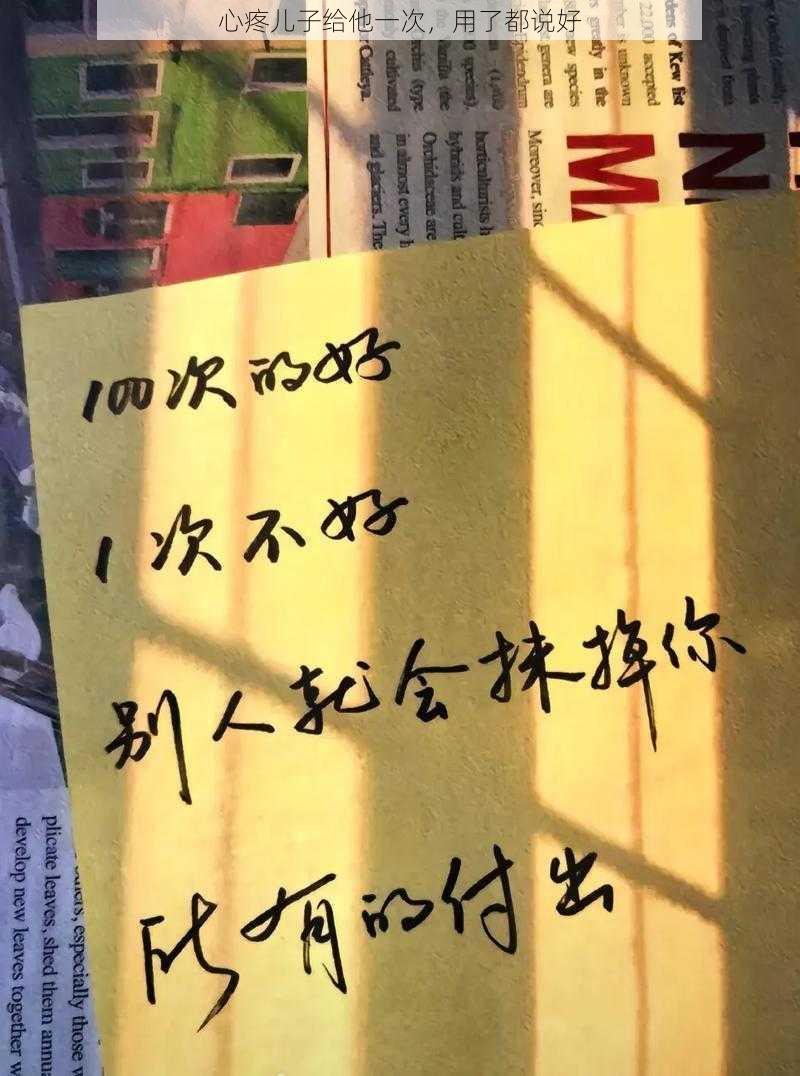 心疼儿子给他一次，用了都说好
dens of Kew list
22,000 accepted
er is unknown
rs greatly in the
ew species
genera are
(1,400
pidendrum
0 species),
Vanilla (the
orchis (type
Cattleya.
ly cultivated
Moreover, sinc
horticulturists h
hybrids and cult
Orchidaceae are
in almost every h
and glaciers. The
N
MA
100次的好
1次不好
别人就会抹掉你
所有的付出
others, especially those w
plicate leaves, shed them annua
develop new leaves together w